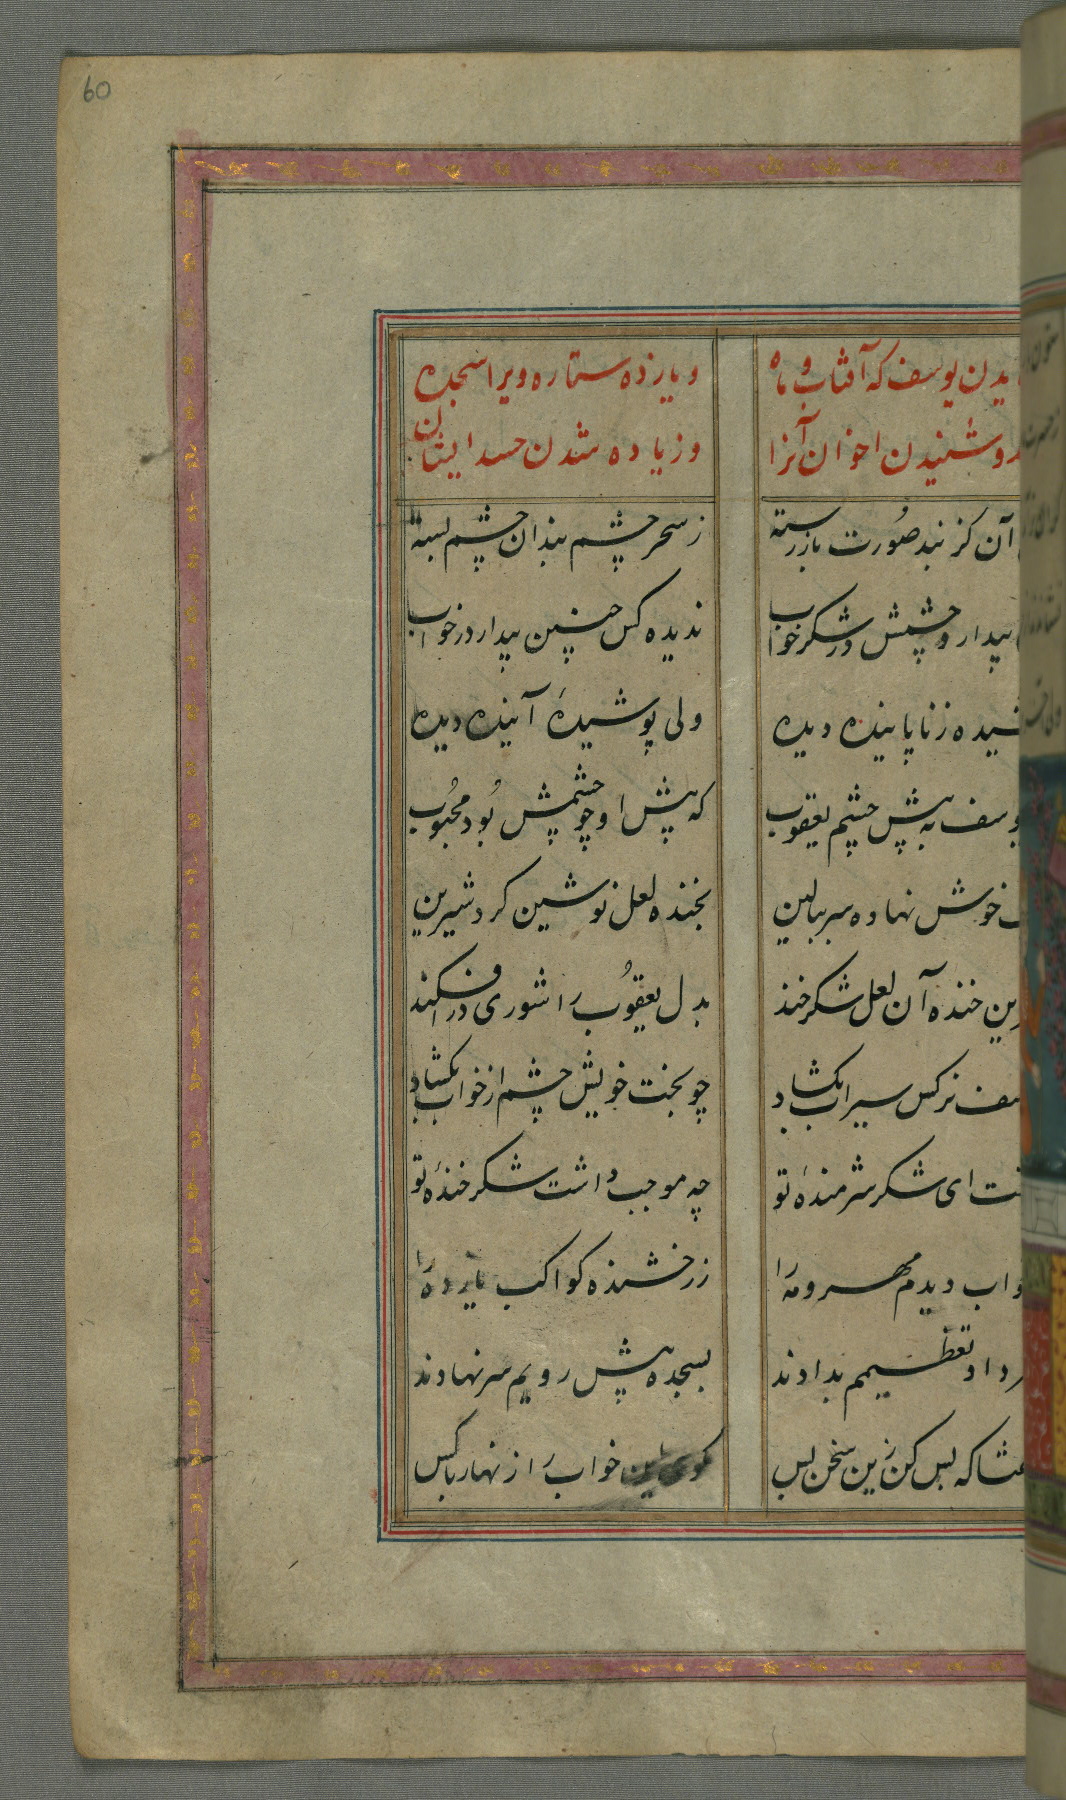 60
یدن یوسف که آفتاب و ماه و یازده ستاره ویرا سجده
و شنیدن اخوان آنرا و زیاده شدن حسد ایشان
آن کز بند صورت باز رسته ز سحر چشم بندان چشم بسته
بیدار و چشمش در شکر خواب ندیده کس چنین بیدار در خواب
ز ناپاینده دیده ولی پوشیدهٔ آینده دیده
یوسف به پیش چشم یعقوب که پیش او چو چشمش بُود محبُوب
خوش نهاده سر ببالین بخنده لعل نوشین کرد شیرین
خنده آن لعل شکر خند بدل یعقوُب را شوری در افکند
نرکس سیراب بکشاد چو بخت خویش چشم از خواب بکشاد
ای شکر شرمندهٔ تو چه موجب داشت شکر خندهٔ تو
دیدم مهر و مه را ز رخشنده کواکب یازده را
داد تعظیمم بدادند بسجده پیش رویم سر نهادند
که بس کن زین سخن بس مکوی این خواب را زنهار با کس